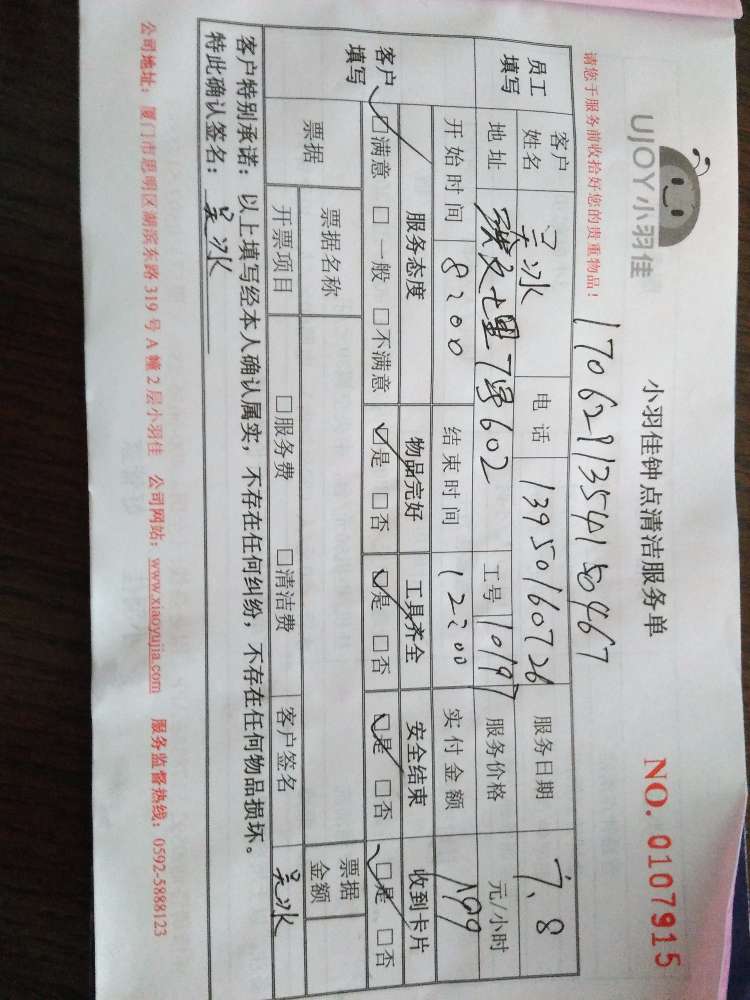 UJOY小羽佳
小羽佳钟点清洁服务单
NO. 0107915
请您于服务前收拾好您的贵重物品！
员工填写
客户姓名 吴冰 电话 13950160726 服务日期 7.8
地址 七里7号602 工号 10197 服务价格 元/小时
开始时间 8:00 结束时间 12:00 实付金额 199
客户填写
服务态度 物品完好 工具齐全 安全结束 收到卡片
☑满意 □一般 □不满意 ☑是 □否 ☑是 □否 ☑是 □否 ☑是 □否
票据 票据名称 票据金额
开票项目 □服务费 □清洁费 客户签名 吴冰
客户特别承诺：以上填写经本人确认属实，不存在任何纠纷，不存在任何物品损坏。
特此确认签名：吴冰
公司地址：厦门市思明区湖滨东路 319 号 A 幢 2 层小羽佳 公司网站：www.xiaoyujia.com 服务监督热线：0592-5888123